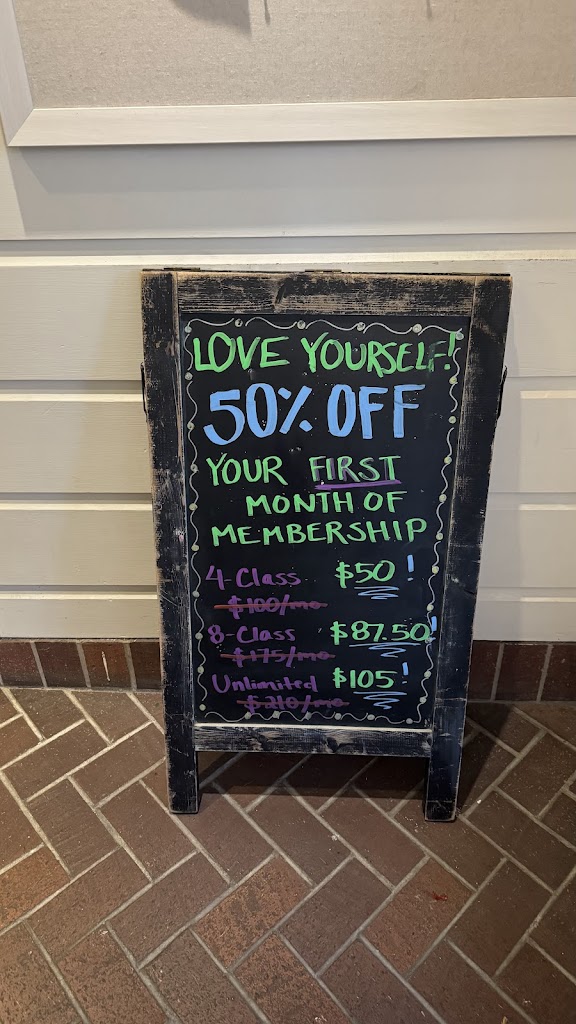 LOVE YOURSELF!
50% OFF
YOUR FIRST
MONTH OF
MEMBERSHIP
4-Class $50!
$100/mo
8-Class $87.50!
$175/mo
Unlimited $105!
$210/mo